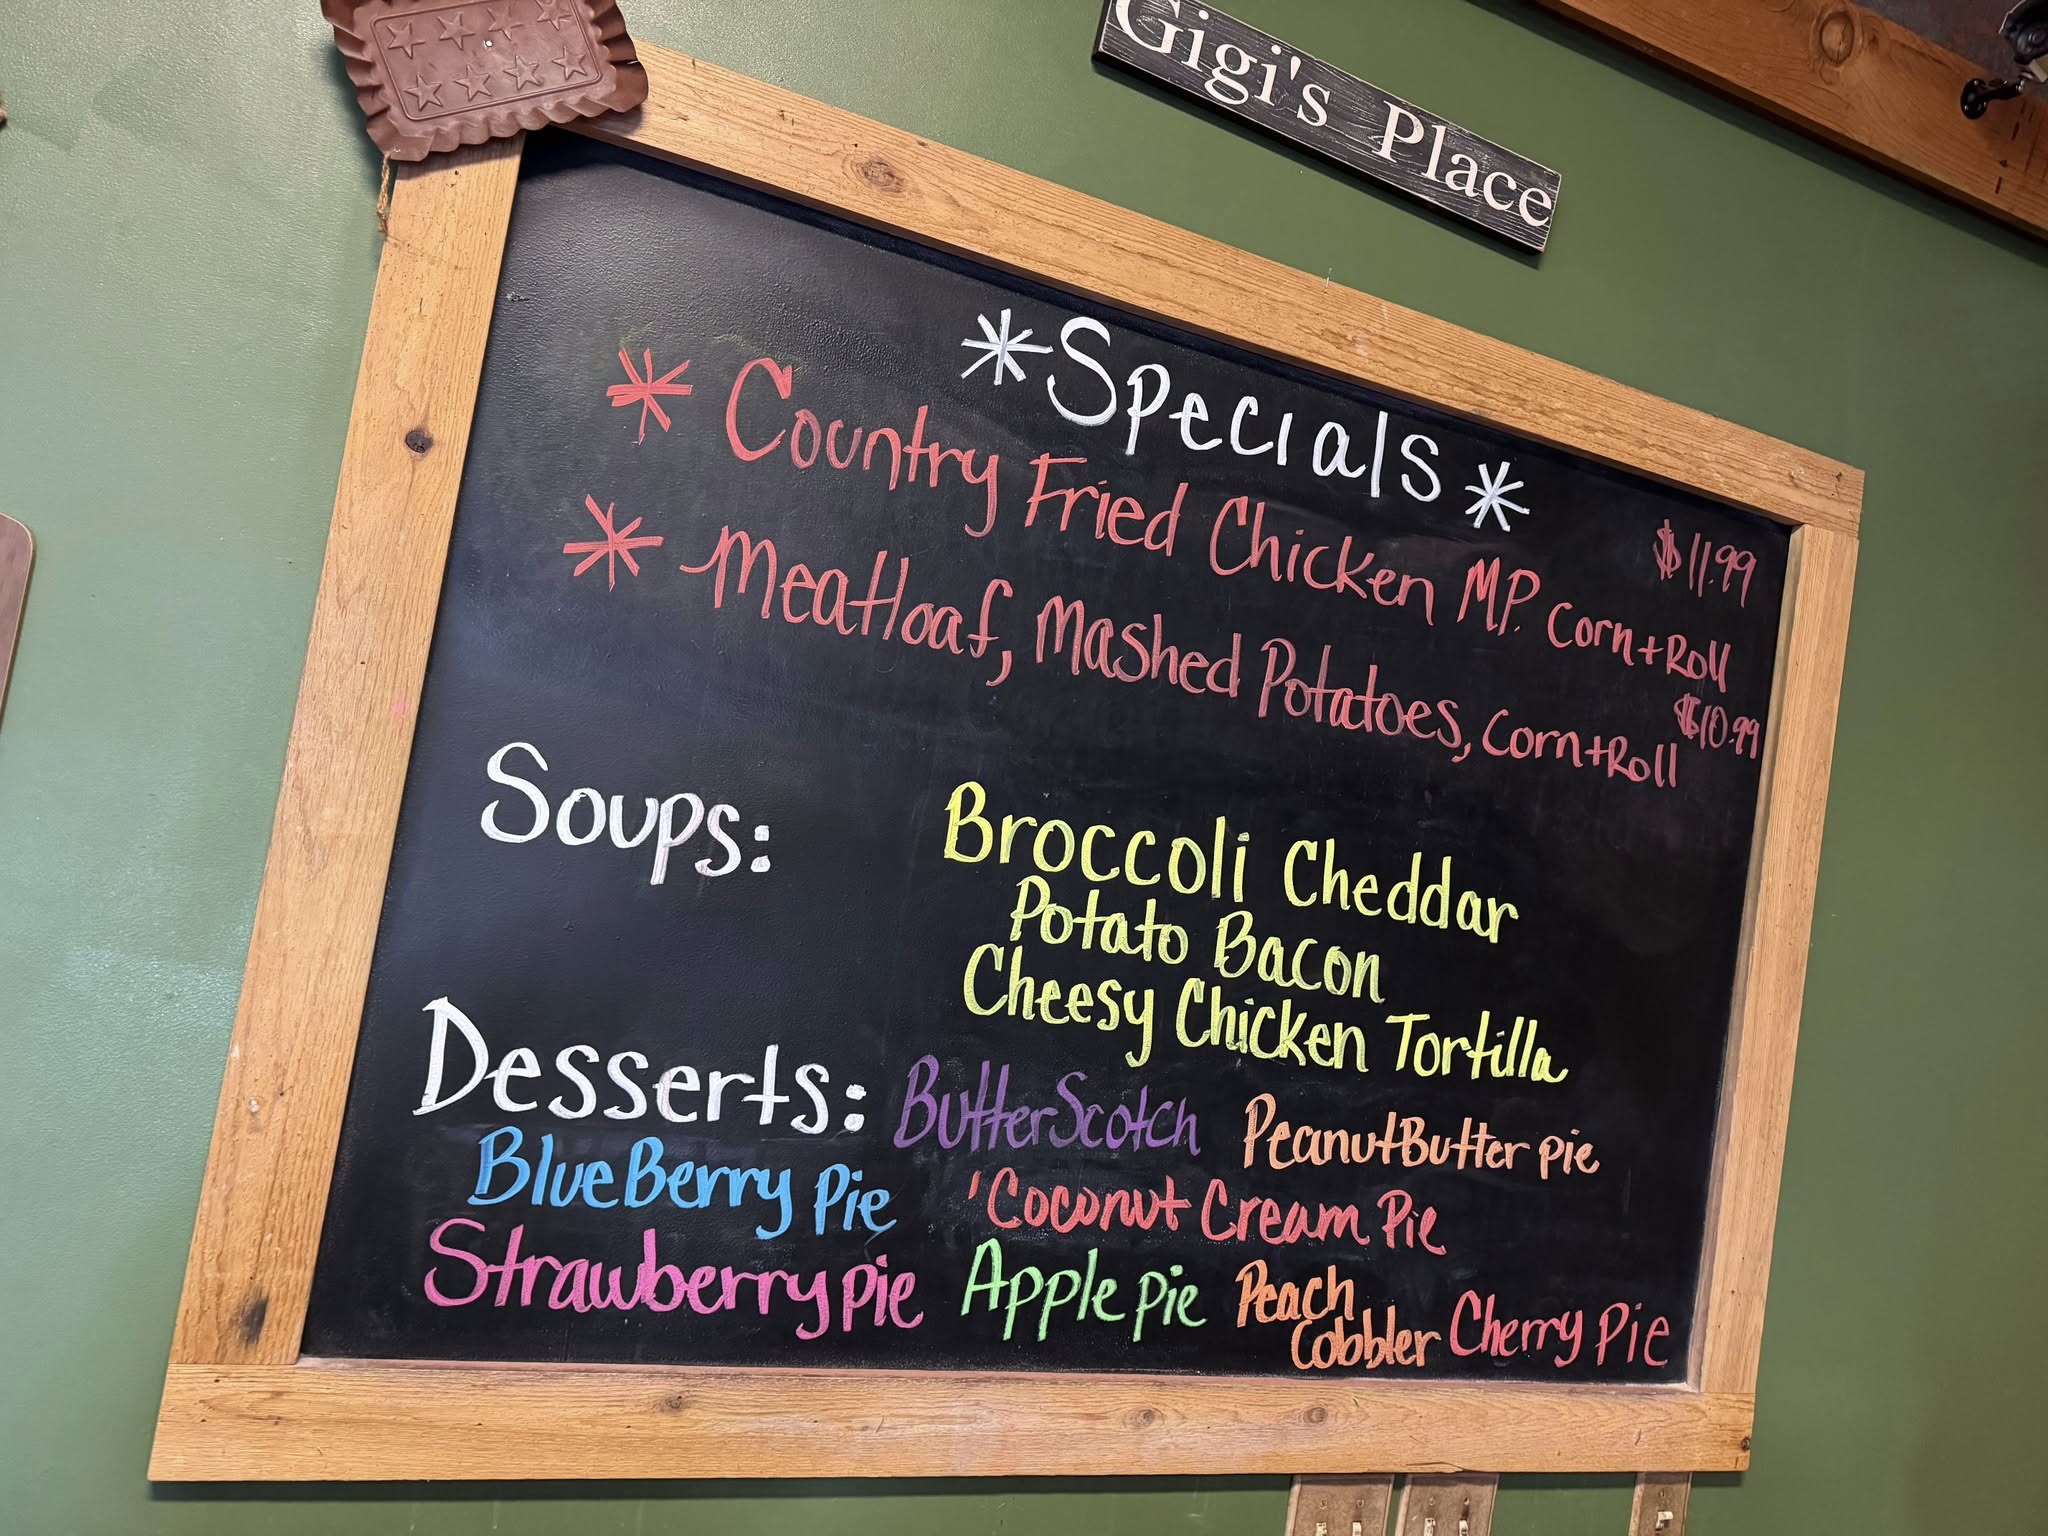 Gigi's Place
*Specials*
* Country Fried Chicken MP. Corn+Roll $11.99
* Meatloaf, Mashed Potatoes, Corn+Roll $10.99
Soups: Broccoli Cheddar
Potato Bacon
Cheesy Chicken Tortilla
Desserts: ButterScotch PeanutButter pie
BlueBerry Pie 'Coconut Cream Pie
Strawberry pie Apple pie Peach Cobbler Cherry Pie